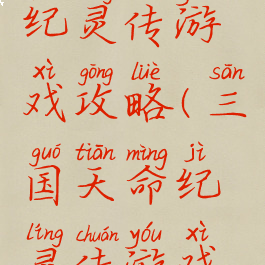 纪灵传游
xì gōng lüè sān
戏攻略(三
guó tiān mìng jì
国天命纪
líng chuán yóu xì
灵传游戏